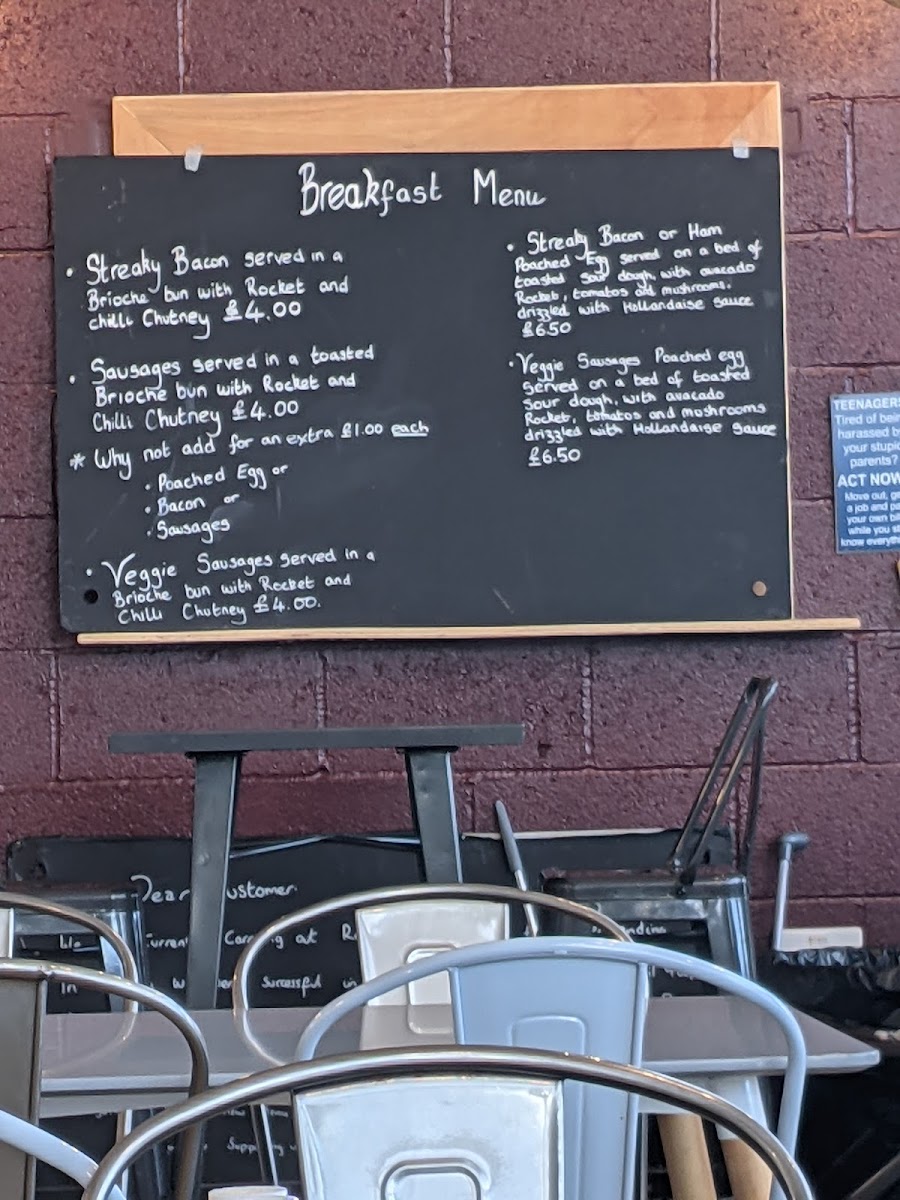 Breakfast Menu
• Streaky Bacon served in a
Brioche bun with Rocket and
chilli Chutney £4.00
• Sausages served in a toasted
Brioche bun with Rocket and
Chilli Chutney £4.00
* Why not add for an extra £1.00 each
• Poached Egg or
• Bacon or
• Sausages
• Veggie Sausages served in a
Brioche bun with Rocket and
Chilli Chutney £4.00.
• Streaky Bacon or Ham
Poached Egg served on a bed of
toasted sour dough, with avacado
Rocket, tomatos and mushrooms.
drizzled with Hollandaise sauce
£6.50
• Veggie Sausages Poached egg
served on a bed of toasted
sour dough, with avacado
Rocket, tomatos and mushrooms
drizzled with Hollandaise sauce
£6.50
TEENAGERS
Tired of
harassed
your
parents?
ACT NOW
Move out,
a job and
your own
while you
know
Dear ustomer
at
In Successful